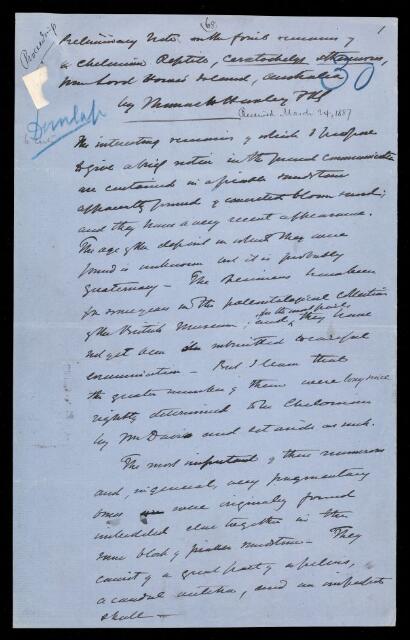 (68
1
Proceedings
Preliminary Note on the fossil remains of
a Chelonian Reptile, Ceratochelys sthenurus,
from Lord Howe's Island, Australia
30
by Thomas H Huxley FRS
Received March 24, 1887
Dunlap
The interesting remains of which I propose
to give a brief notice in the present communication
are contained in a friable sandstone
apparently formed of concreted blown sand;
and they have a very recent appearance.
The age of the deposit in which they were
found is unknown but it is probably
Quaternary – The specimens have been
for some years in the palæontological Collection
of the British Museum; and, for the most part, they have
not yet been submitted to careful
examination – But I learn that
the greater number of them were long since
rightly determined to be Chelonian
by Mr Davis and set aside as such.
The most important of these numerous
and, in general, very fragmentary
bones were originally found
imbedded close together in the
same block of friable sandstone – They
consist of a great part of a pelvis,
a caudal vertebra, and an imperfect
skull –